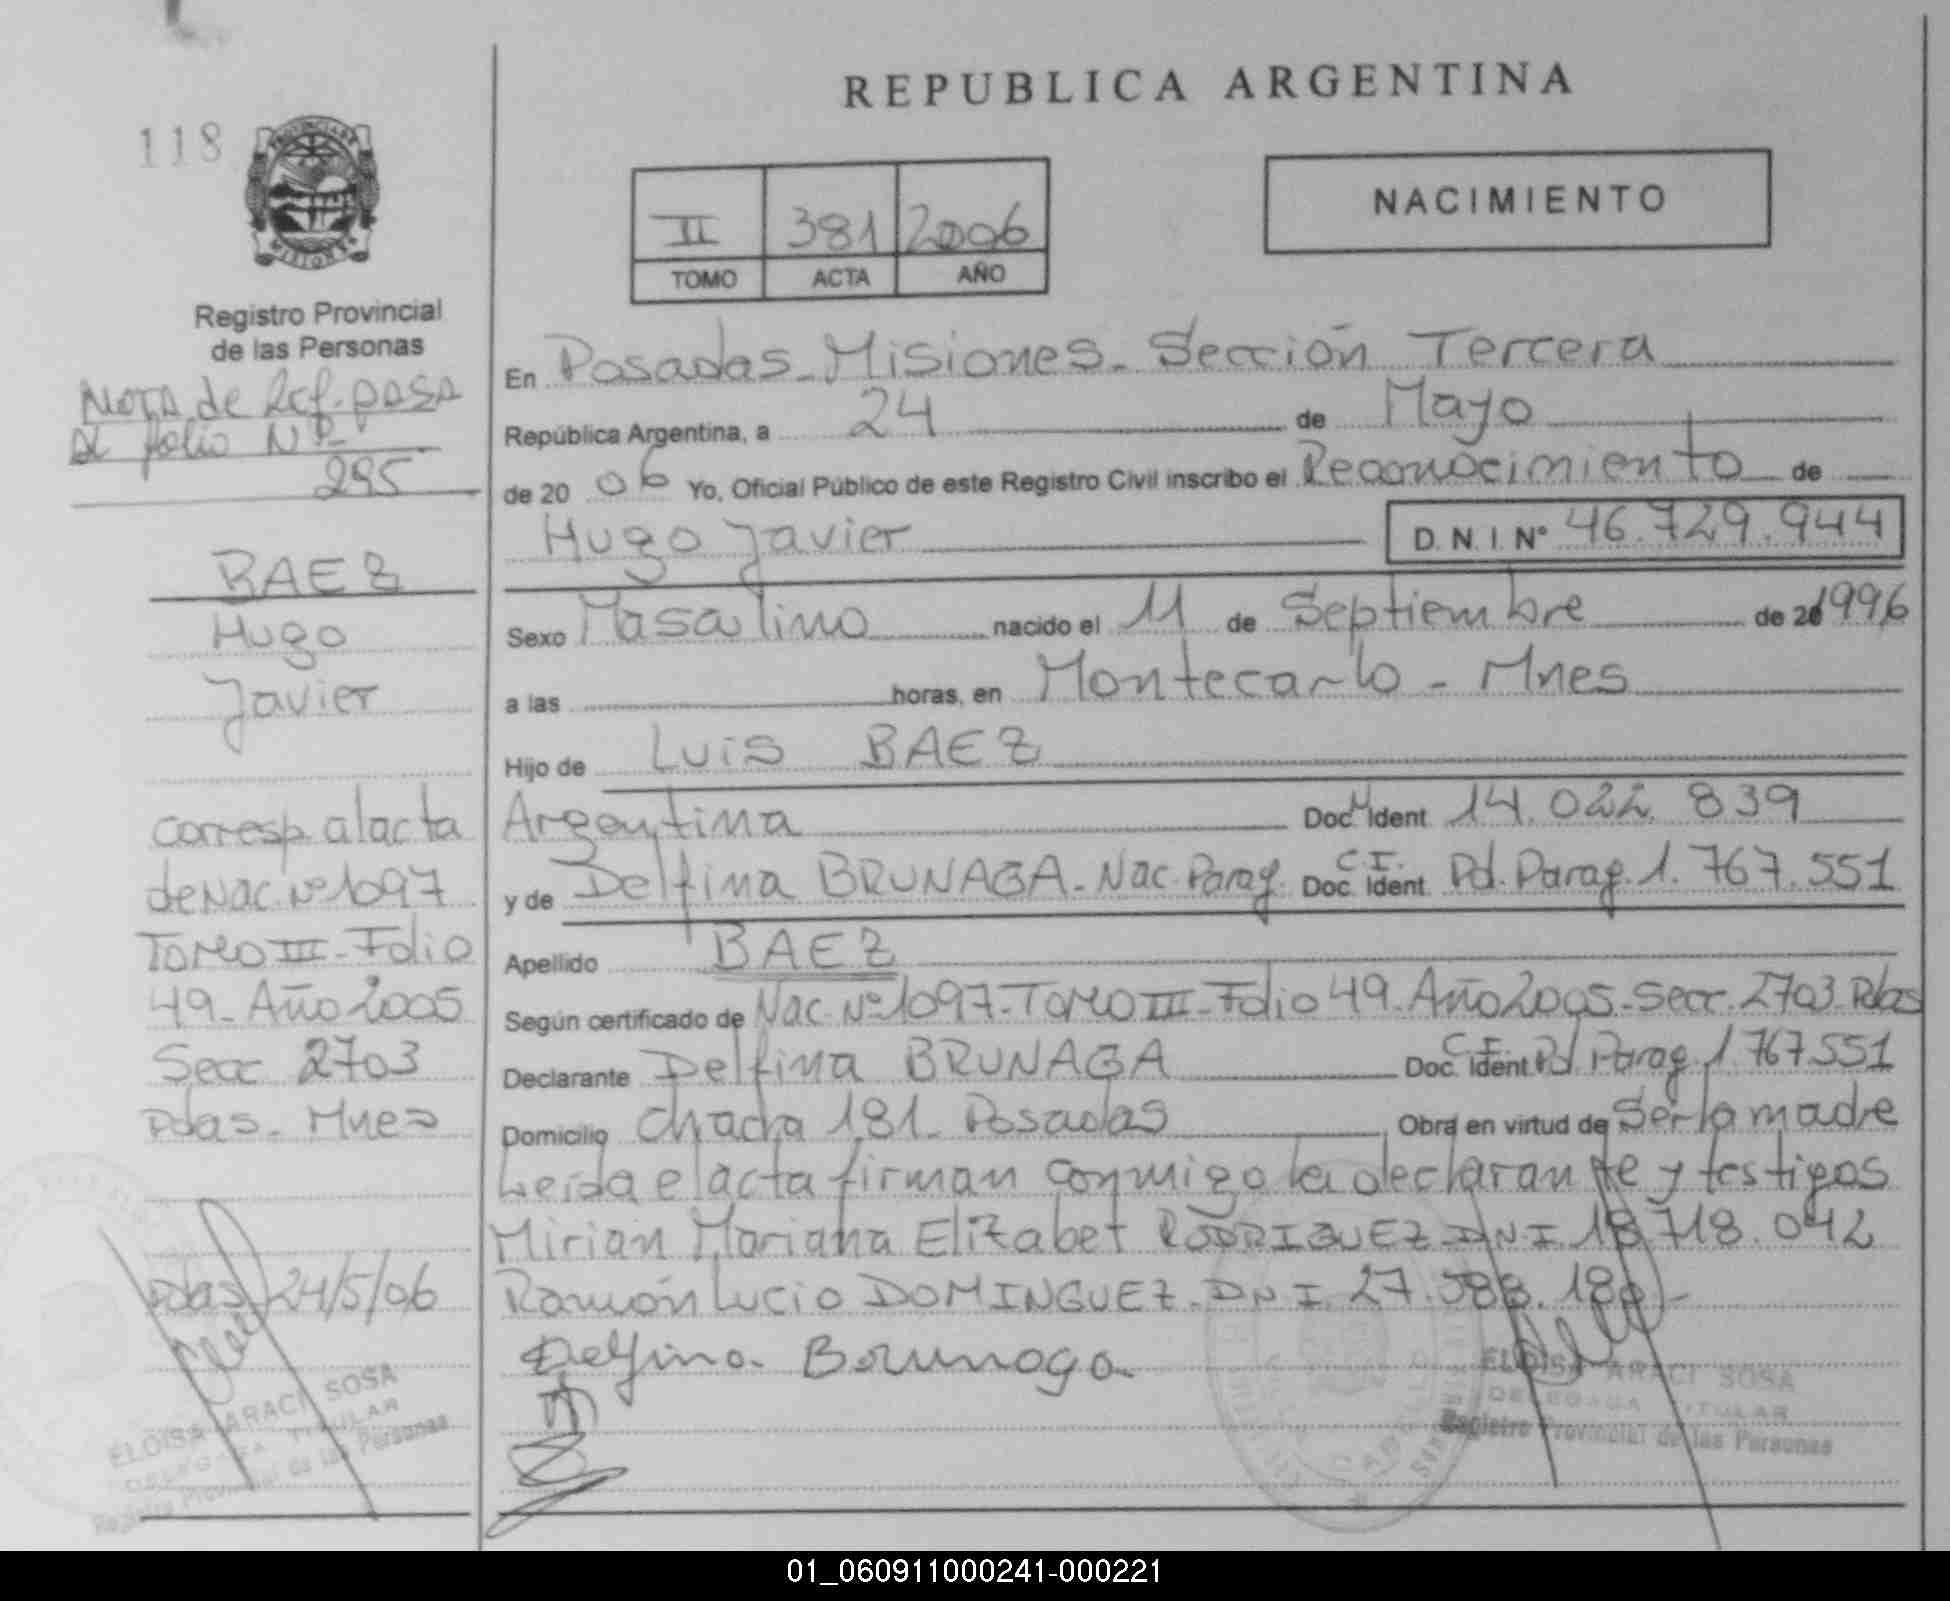 REPUBLICA ARGENTINA
118
PROVINCIA DE
MISIONES
Registro Provincial
de las Personas
Nota de Ref. pasa
al folio Nº
295
BAEZ
Hugo
Javier
corresp. al acta
de Nac. Nº 1097
TOMO III - Folio
49 - Año 2005
Secc 2703
Pdas. Mnes
Pdas 24/5/06
ELOISA ARACI SOSA
DELEGADA TITULAR
Registro Provincial de las Personas
II 381 2006
TOMO ACTA AÑO
NACIMIENTO
En Posadas - Misiones - Sección Tercera
República Argentina, a 24 de Mayo
de 20 06 Yo, Oficial Público de este Registro Civil inscribo el Reconocimiento de
Hugo Javier D. N. I. Nº 46.729.944
Sexo Masculino nacido el 11 de Septiembre de 20 1996
a las horas, en Montecarlo - Mnes
Hijo de Luis BAEZ
Argentina Doc. Ident 14.022.839
y de Delfina BRUNAGA - Nac. Parag. C.I. Doc. Ident. Pd. Parag. 1.767.551
Apellido BAEZ
Según certificado de Nac. Nº 1097 - TOMO III - Folio 49 - Año 2005 - Secc. 2703 Pdas
Declarante Delfina BRUNAGA C.I. Doc. Ident. Pd. Parag. 1.767.551
Domicilio Chacra 181 - Posadas Obra en virtud de Ser la madre
Leída el acta firman conmigo la declarante y testigos
Mirian Mariana Elizabet RODRIGUEZ DNI 18.718.042
Ramón Lucio DOMINGUEZ - DNI. 27.
Delfina Brunaga
ELOISA ARACI SOSA
DELEGADA TITULAR
Registro Provincial de las Personas
01_060911000241-000221